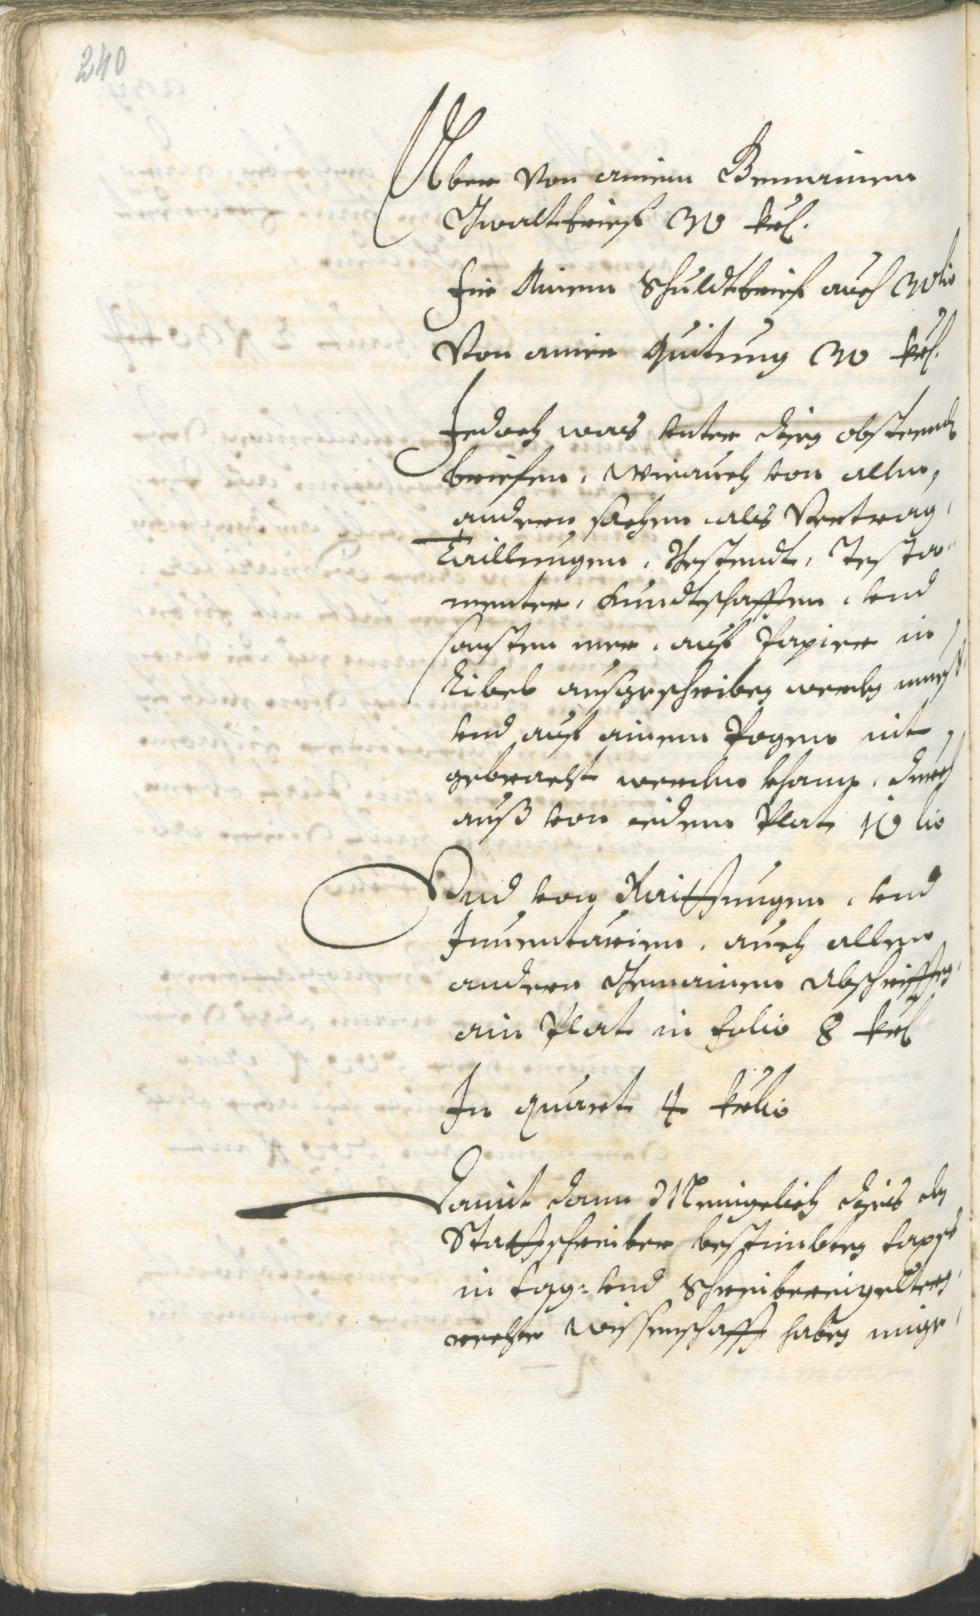 240
Aber von ainem Gemainen
Gwaltsbrief 30 kr.
Für Ainem Schuldtbrief auch 30 kr
Von ainer Quitung 30 kr.
Jedoch was unter disen obsteenden
briefen, wie auch von allen
andern sachen als Vertrag,
Taillungen, Bestendt, Testa-
menter, Kundtschafften, und
sonsten mer, auf Papier in
Libel ausgeschriben werden mues
und auf ainem Pogen nit
gebracht werden khann, durch
auß von iedem Plat 10 kr
Und von Raittungen, und
Inventarien, auch allen
andern Gemainen Abschrifften,
ain Plat in folio 8 kr
In quart 4 kr
Damit dann Menigelich dises des
Stattschreiber bestimbten tax
in tag- und Schreibereigeltern,
rechte Wissenschafft haben mige,